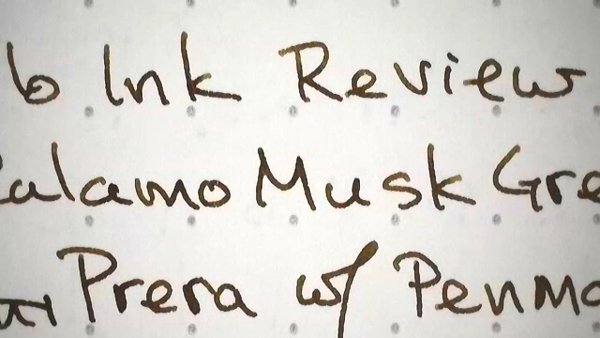 b Ink Review
alamo Musk Gre
Prera w/ Penma